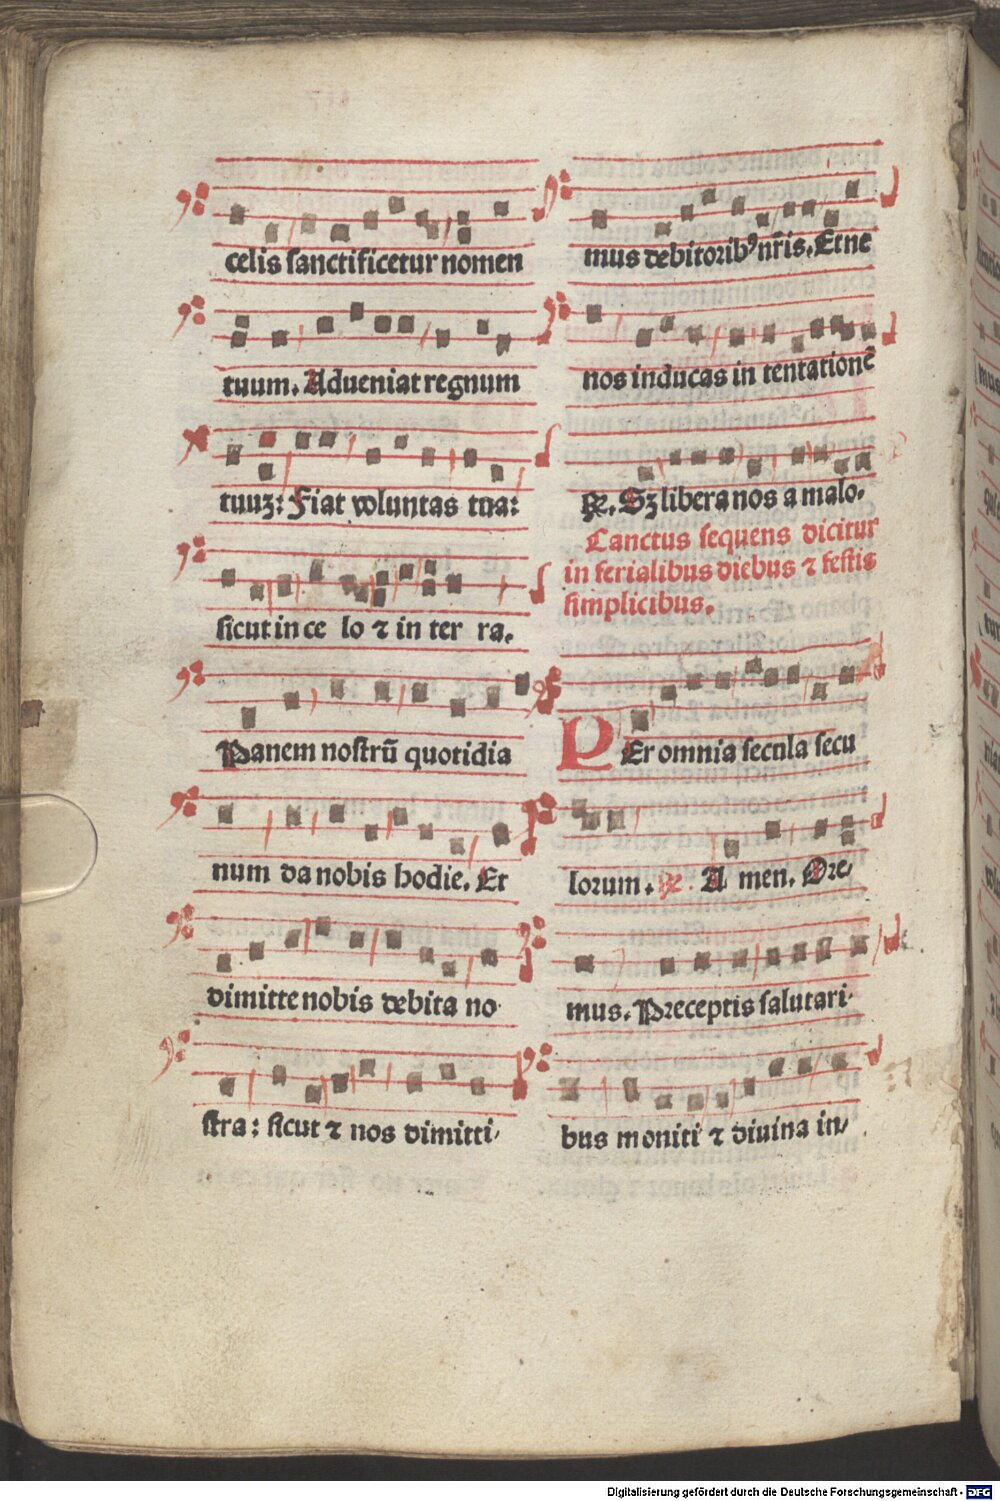 celis sanctificetur nomen
tuum. Adueniat regnum
tuuʒ: Fiat voluntas tua:
sicut in ce lo ⁊ in ter ra.
Panem nostrū quotidia
num da nobis hodie. Et
dimitte nobis debita no
stra: sicut ⁊ nos dimitti/
mus debitoribꝰ nr̄is. Et ne
nos inducas in tentationē
℟. Sʒ libera nos a malo.
Cantus sequens dicitur
in ferialibus diebus ⁊ festis
simplicibus.
PEr omnia secula secu
lorum. ℟. A men. Ore/
mus. Preceptis salutari
bus moniti ⁊ diuina in/
Digitalisierung gefördert durch die Deutsche Forschungsgemeinschaft - DFG